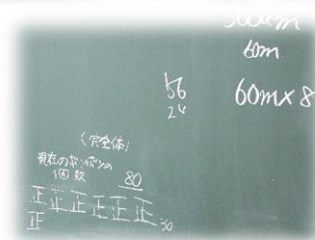 60m
56
24
60m×8
(完全体)
現在のポンポンの
個数
80
正正正正正正30
正